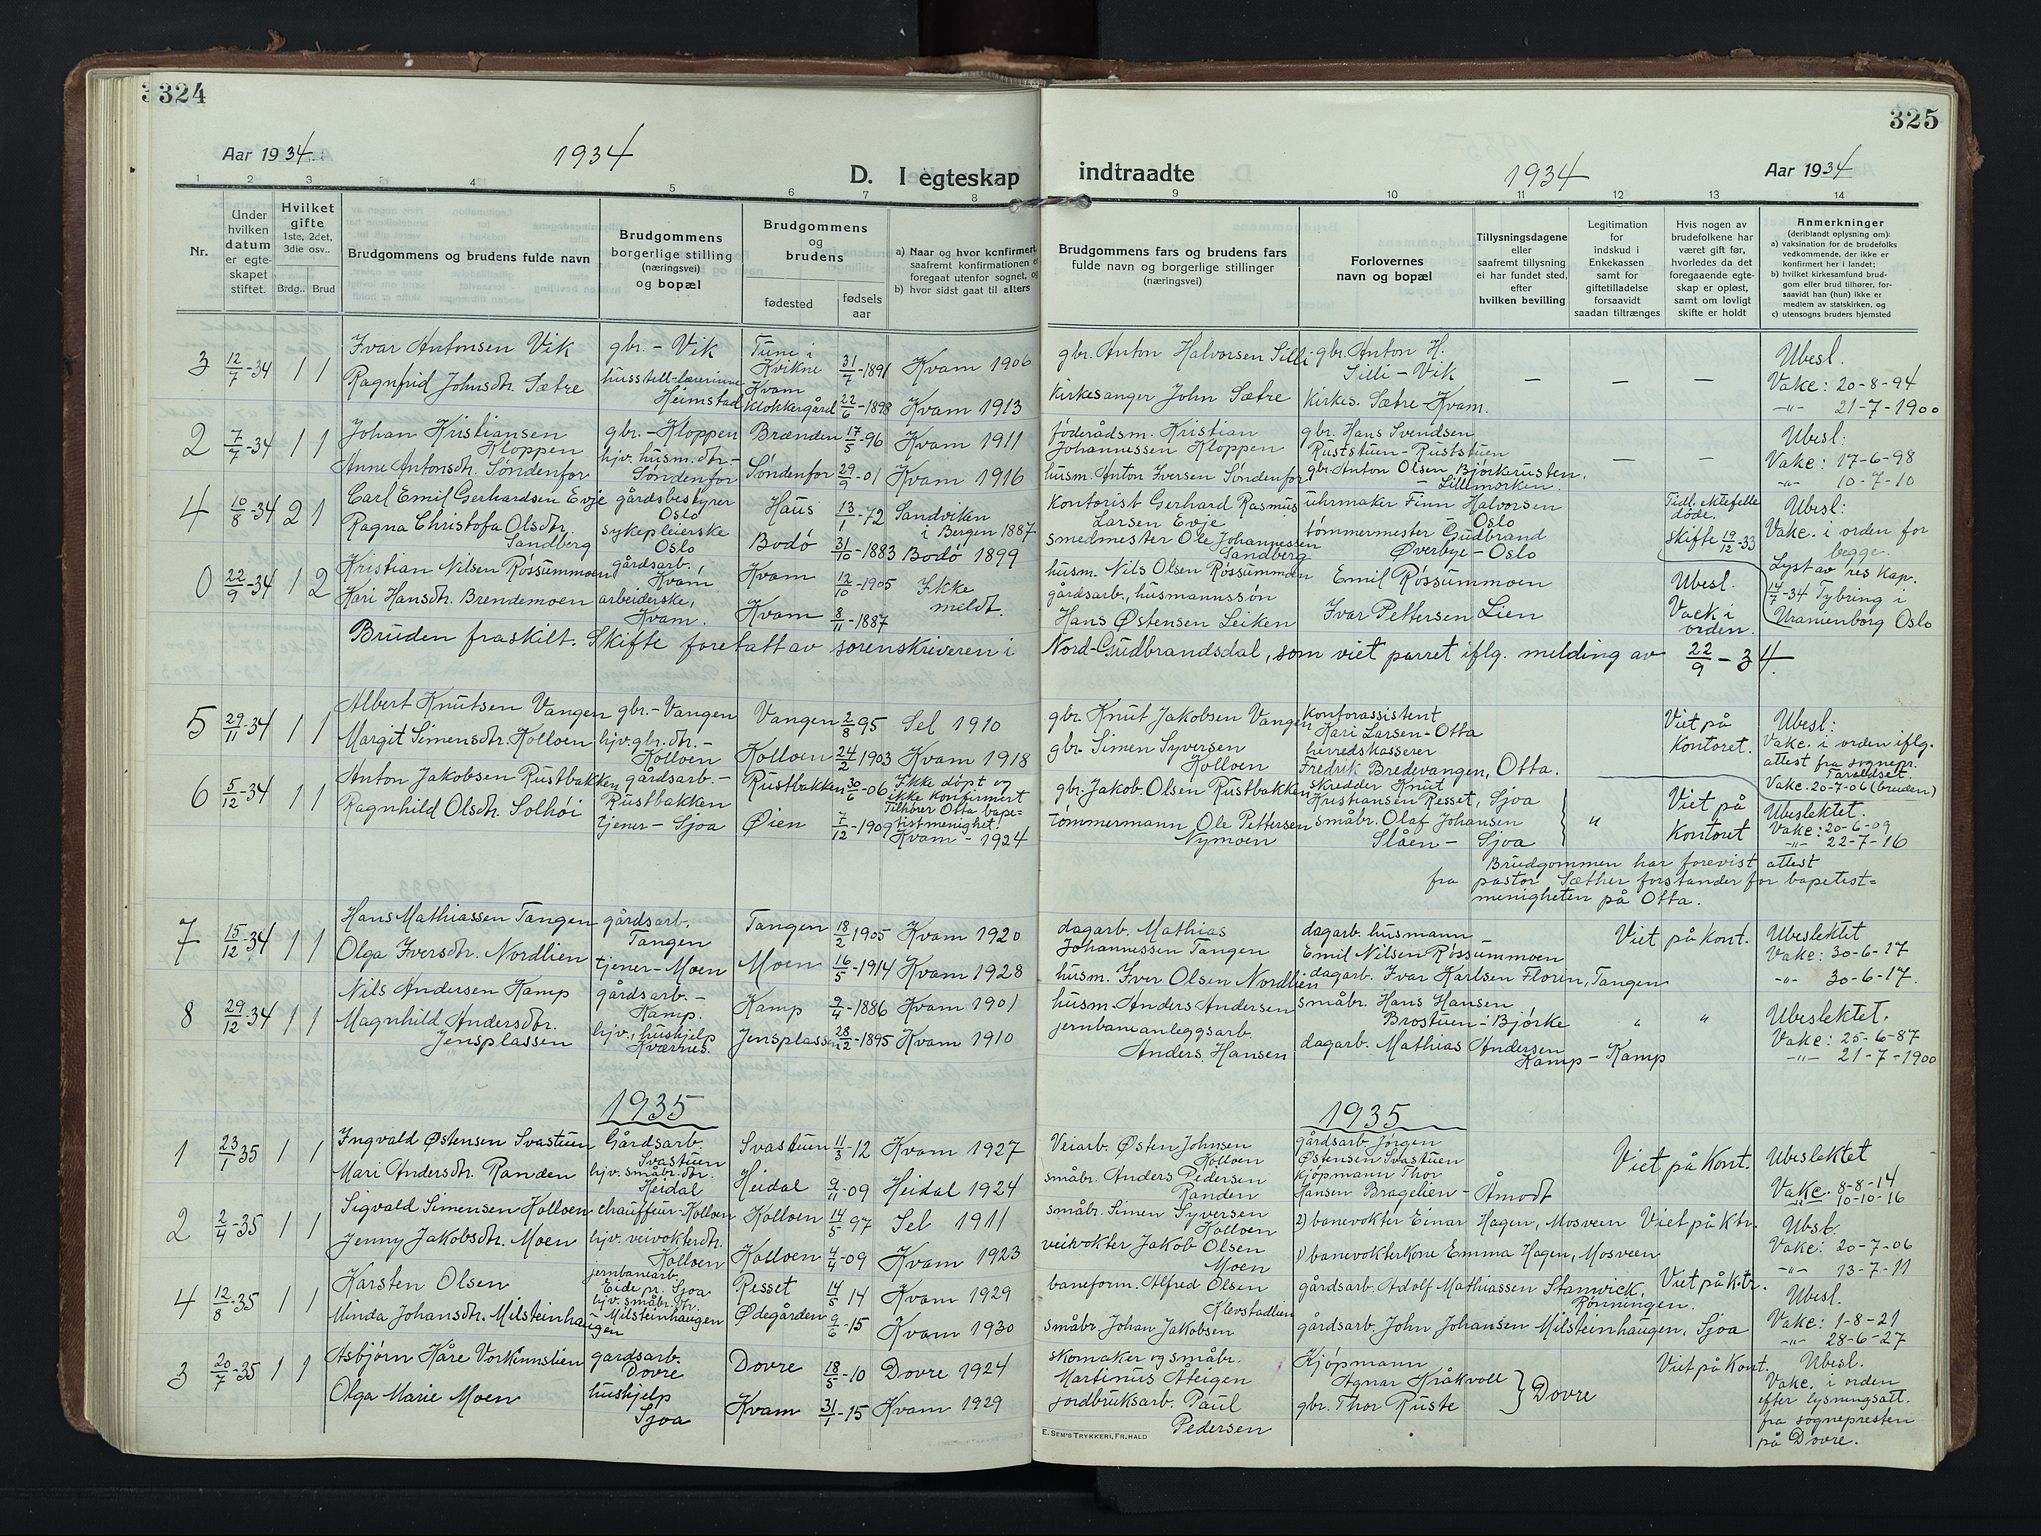 324
325
Aar 1934.
1934
D. I egteskap
indtraadte
1934
Aar 1934
1 2 3 4 5 6 7 8 9 10 11 12 13 14
Nr.
Under hvilken datum er egteskapet stiftet.
Hvilket gifte 1ste, 2det, 3die osv..
Brdg.. Brud
Brudgommens og brudens fulde navn
Brudgommens borgerlige stilling (næringsvei) og bopæl
Brudgommens og brudens
fødested
fødselsaar
a) Naar og hvor confirmert, saafremt konfirmationen er foregaat utenfor sognet, og b) hvor sidst gaat til alters
Brudgommens fars og brudens fars fulde navn og borgerlige stillinger (næringsvei)
Forlovernes navn og bopæl
Tillysningsdagene eller saafremt tillysning ei har fundet sted, efter hvilken bevilling
Legitimation for indskud i Enkekassen samt for giftetilladelse forsaavidt saadan tiltrænges
Hvis nogen av brudefolkene har været gift før, hvorledes da det foregaaende egteskap er opløst, samt om lovlig skifte er holdt
Anmerkninger (deriblandt oplysning om): a) vaksination for de brudefolks vedkommende, der ikke er konfirmert her i landet; b) hvilket kirkesamfund brudgom eller brud tilhører, forsaavidt han (hun) ikke er medlem av statskirken, og c) utensogns bruders hjemsted
3 12/7-34 1 1 Ivar Antonsen Vik gbr. - Vik Tune i Kvikne 31/7-1891 Kvam 1906 gbr. Anton Halvorsen Silli gbr. Anton H. Silli - Vik — — — Ubesl.
Ragnfrid Johnsdtr. Sætre husstell-lærerinne Heimstad Kvam Klokkergård 22/6-1898 Kvam 1913 kirkesanger John Sætre kirkes. Sætre - Kvam. Vakc: 20-8-94
-"- 21-7-1900
2 7/7-34 1 1 Johan Kristiansen Kloppen gbr. - Kloppen Brænden 17/5-96 Kvam 1911 føderådsm. Kristian Johannessen Kloppen gbr. Hans Svendsen Ruststuen - Ruststuen — — Ubesl:
Anne Antonsdtr. Søndenfor hjv. husm. dtr. - Søndenfor Søndenfor 29/9-01 Kvam 1916 husm. Anton Iversen Søndenfor gbr. Anton Olsen Bjørkerusten, - Lillmorken. Vakc: 17-6-98
-"- 10-7-10
4 10/8-34 2 1 Carl Emil Gerhardsen Evje gårdsbestyrer Oslo Haus 13/1-72 Sandviken i Bergen 1887 kontorist Gerhard Rasmus Larsen Evje uhrmaker Finn Halvorsen Oslo Tidl. ektefelle døde. Ubesl:
Ragna Christofa Olsdtr. Sandberg sykepleierske Oslo Bodø 31/10-1883 Bodø 1899 smedmester Ole Johannessen Sandberg tømmermester Gudbrand Øverbye - Oslo skifte 19/12-33 Vakc. i orden for begge.
Lyst av res kap. 14/7-34 Tybring i Uranienborg Oslo
0 22/9-34 1 2 Kristian Nilsen Røssummoen gårdsarb. Kvam Kvam 12/10-1905 Ikke meldt. husm. Nils Olsen Røssummoen Emil Røssummoen Ubesl.
Kari Hansdtr. Brendemoen arbeiderske, Kvam. Kvam 8/11-1887 gårdsarb., husmannssøn Hans Østensen Leiken Ivar Pettersen Lien Vack i orden.
Bruden fraskilt. Skifte foretatt av sorenskriveren i Nord-Gudbrandsdal, som viet parret iflg. melding av 22/9-34.
5 29/11-34 1 1 Albert Knutsen Vangen gbr. - Vangen Vangen 2/8 95 Sel 1910 gbr Knut Jakobsen Vangen kontorassistent Kari Larsen - Otta Viet på kontoret. Ubesl:
Margit Simensdtr. Kolloen hjv. gbr. dtr. - Kolloen Kolloen 24/2 1903 Kvam 1918 gbr. Simen Syversen Kolloen herredskasserer Fredrik Bredevangen, Otta. Vakc. i orden iflg. attest fra sognepr. Taraldset.
Vakc. 20-7-06 (bruden)
6 5/12-34 1 1 Anton Jakobsen Rustbakken gårdsarb. - Rustbakken Rustbakken 30/6-06 Ikke døpt og ikke konfirmert Tilhører Otta bapetistmenighet. gbr. Jakob Olsen Rustbakken skredder Knut Kristiansen Resset, Sjoa " Viet på Kontoret Ubeslektet.
Ragnhild Olsdtr. Solhøi tjener - Sjoa Øien 7/12-1909 Kvam - 1924 tømmermann Ole Pettersen Nymoen småbr. Olaf Johansen Slåen - Sjoa Vakc: 20-6-09
-"- 22-7-16
Brudgommen har forevist attest
fra pastor Sæther forstander for bapetist=
menigheten på Otta.
7 15/12-34 1 1 Hans Mathiassen Tangen gårdsarb. Tangen Tangen 18/2 1905 Kvam 1920 dagarb. Mathias Johannessen Tangen dagarb. husmann Emil Nilsen Røssummoen Viet på kont. Ubeslektet
Olga Iversdtr. Nordlien tjener - Moen Moen 16/5-1914 Kvam 1928 husm. Iver Olsen Nordlien dagarb. Ivar Karlsen Floren, Tangen Vakc: 30-6-17
-"- 30-6-17.
8 29/12-34 1 1 Nils Andersen Kamp gårdsarb. - Kamp. Kamp 9/4-1886 Kvam 1901 husm. Anders Andersen småbr. Hans Hansen Brostuen - Bjørke " " Ubeslektet.
Magnhild Andersdtr. Jensplassen hjv., hushjelp Kværnes. Jensplassen 28/2-1895 Kvam 1910 jernbaneanleggsarb. Anders Hansen dagarb. Mathias Andersen Kamp - Kamp Vakc: 25-6-87
-"- 21-7-1900
1935
1935
1 23/1 35 1 1 Ingvald Østensen Svastuen Gårdsarb. Svastuen Svastuen 11/3-12 Kvam 1927 Veiarb. Østen Johnsen Kolloen gårdsarb. Jørgen Østensen Svastuen Viet på Kont. Ubeslektet
Mari Andersdtr. Randen hjv. småbr. dtr. Heidal Heidal 9/11-09 Heidal 1924 småbr. Anders Pedersen Randen kjøpmann Thor Hansen Bragelien - Åmodt Vakc. 8-8-14
-"- 10-10-16
2 2/4-35 1 1 Sigvald Simensen Kolloen chauffeur - Kolloen Kolloen 14/5-97 Sel 1911 småbr. Simen Syversen Kolloen 2) banevokter Einar Hagen, Mosveen Viet på ktr. Ubsl.
Jenny Jakobsdtr. Moen hjv. veivokterdtr. Kolloen Kolloen 4/4-09 Kvam 1923 veivokter Jakob Olsen Moen 1) banevokterkone Emma Hagen, Mosveen Vakc: 20-7-06
-"- 13-7-11
4 12/8-35 1 1 Karsten Olsen jernbanearb. Eide pr. Sjoa Resset 14/5-14 Kvam 1929 baneform. Alfred Olsen Klevstadlien gårdsarb. Adolf Mathiassen Stamwick, Rønningen. Viet på ktr. Ubesl.
Minda Johansdtr. Milsteinhaugen hjv. småbr. dtr. Milsteinhaugen Ødegården 9/6-15 Kvam 1930 småbr. Johan Jakobsen gårdsarb. John Johansen Milsteinhaugen, Sjoa Vakc: 1-8-21
-"- 28-6-27
3 20/7-35 1 1 Asbjørn Kåre Vorkinnslien gardsarb. Dovre Dovre 18/5-10 Dovre 1924 skomaker og småbr. Martinus Åteigen Kjøpmann Agnar Kråkvoll Dovre Viet på Kont. Ubesl.
Olga Marie Moen hushjelp Sjoa Kvam 31/1-15 Kvam 1929 jordbruksarb. Paul Pedersen gbr. Thor Ruste Vakc. i orden efter lysningsatt. fra sognepresten på Dovre.
E. SEM'S TRYKKERI, FR.HALD